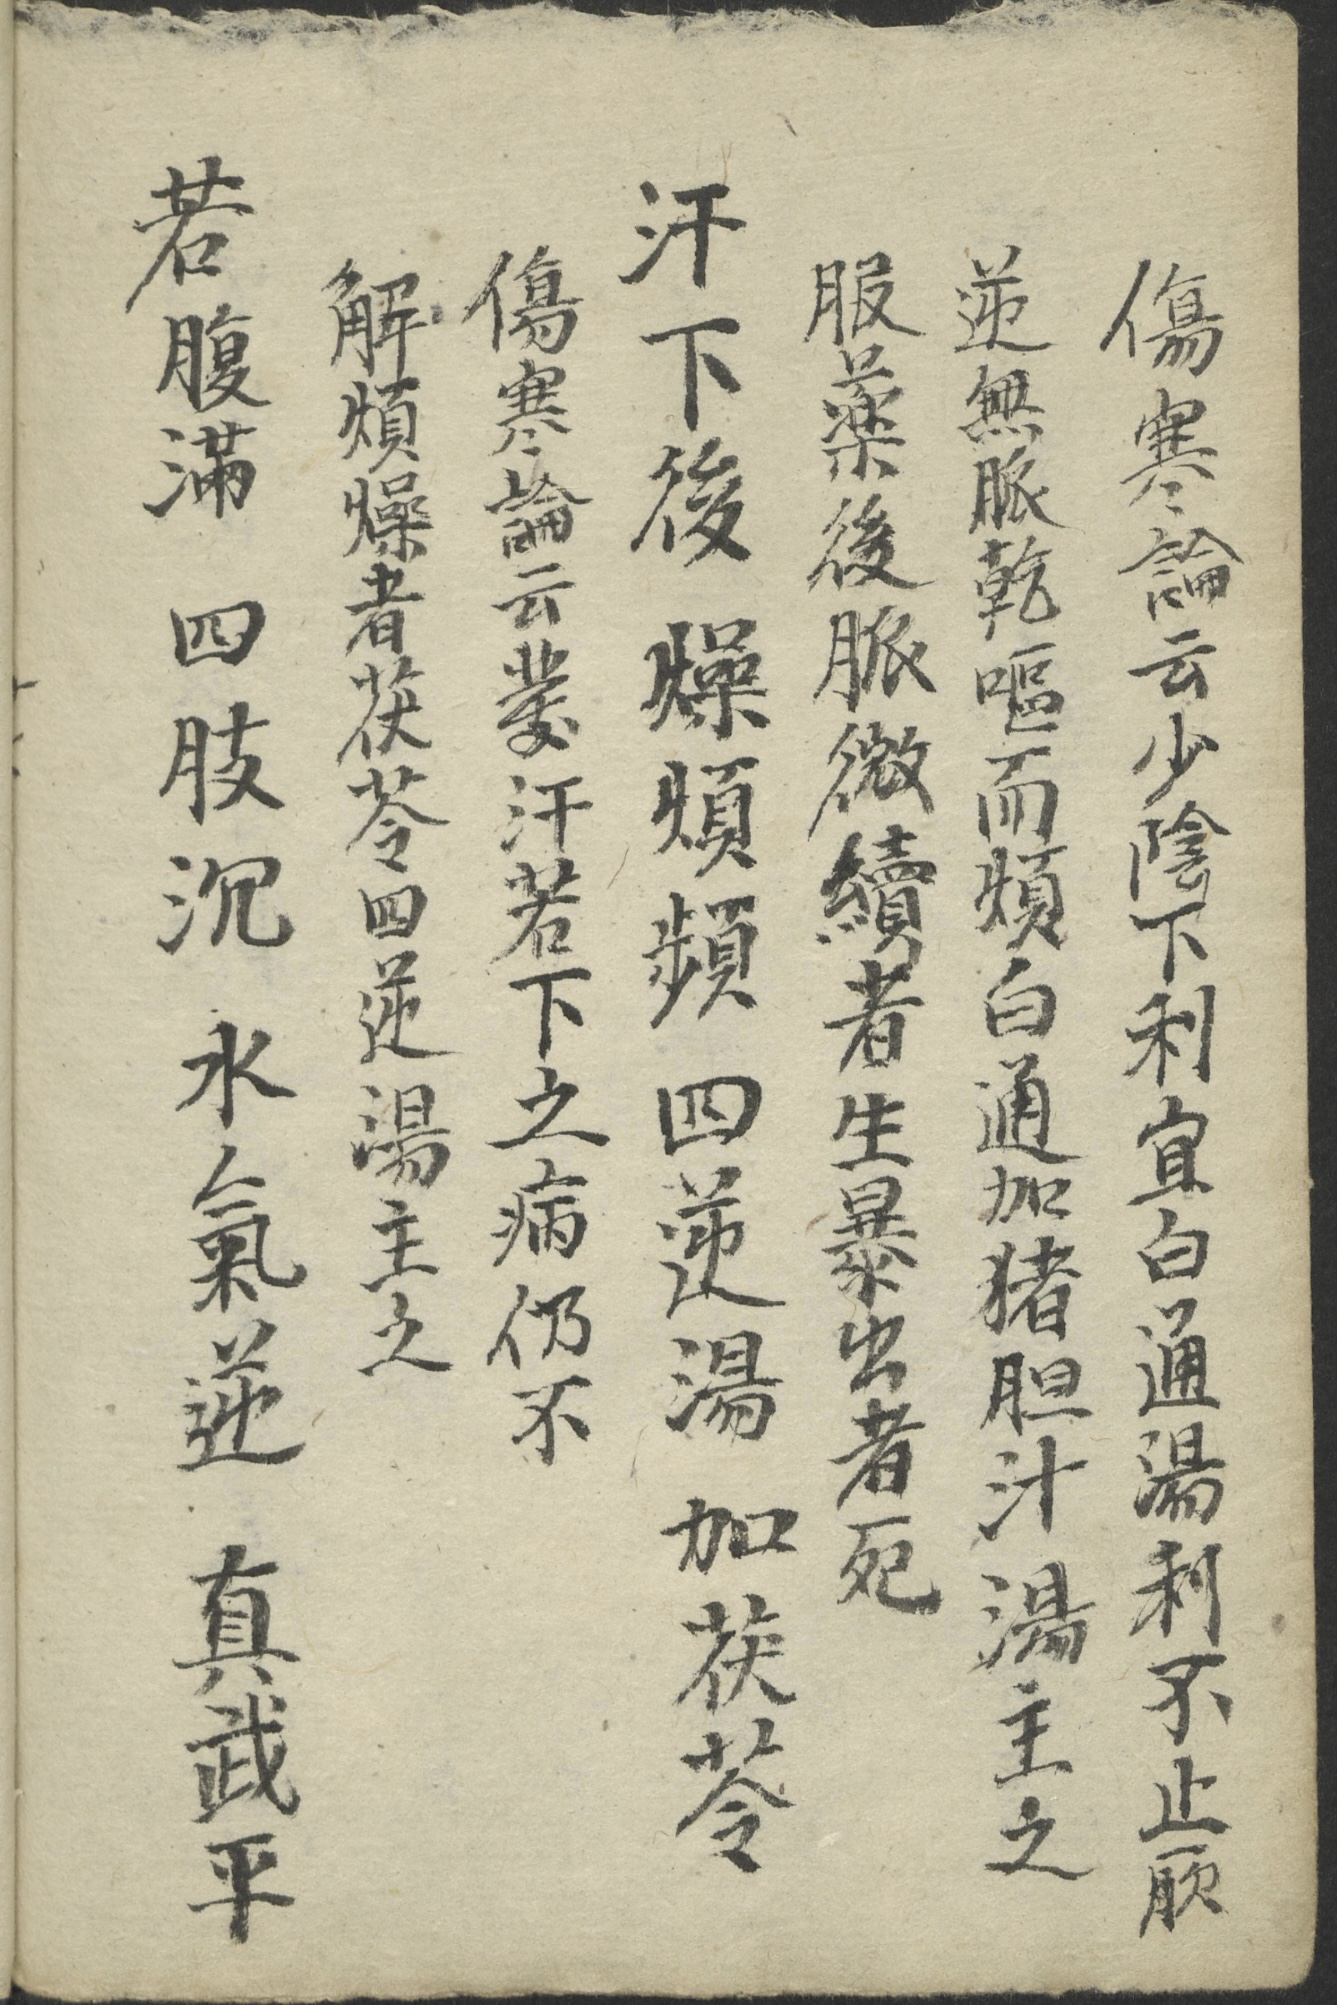 傷寒論云少陰下利宜白通湯利不止厥
逆無脈乾嘔而煩白通加猪胆汁湯主之
服藥後脈微續者生暴出者死
汗下後 燥煩頻 四逆湯 加茯苓
傷寒論云發汗若下之病仍不
解煩燥者茯苓四逆湯主之
若腹滿 四肢沉 水氣逆 真武平